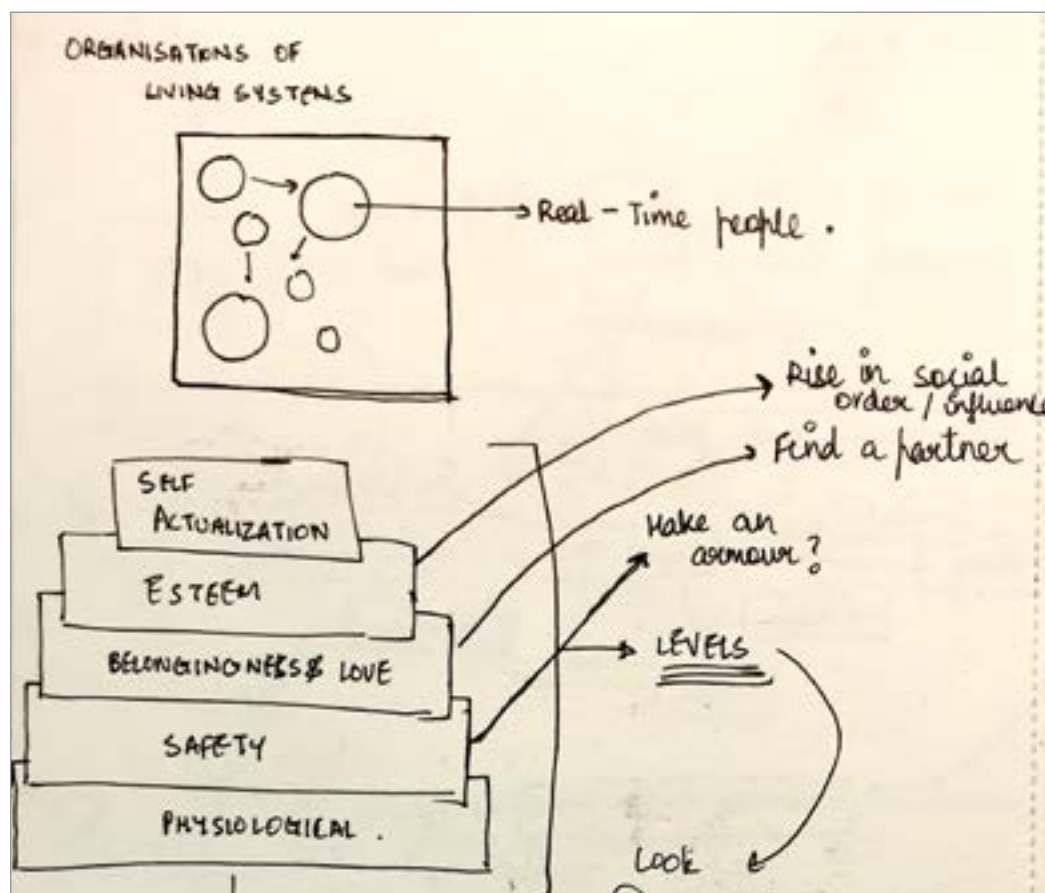 ORGANISATIONS OF
LIVING SYSTEMS
Real-Time people.
Rise in social
order / influence
Find a partner
Make an
armour?
SELF
ACTUALIZATION
ESTEEM
BELONGINGNESS & LOVE
LEVELS
SAFETY
PHYSIOLOGICAL.
Look